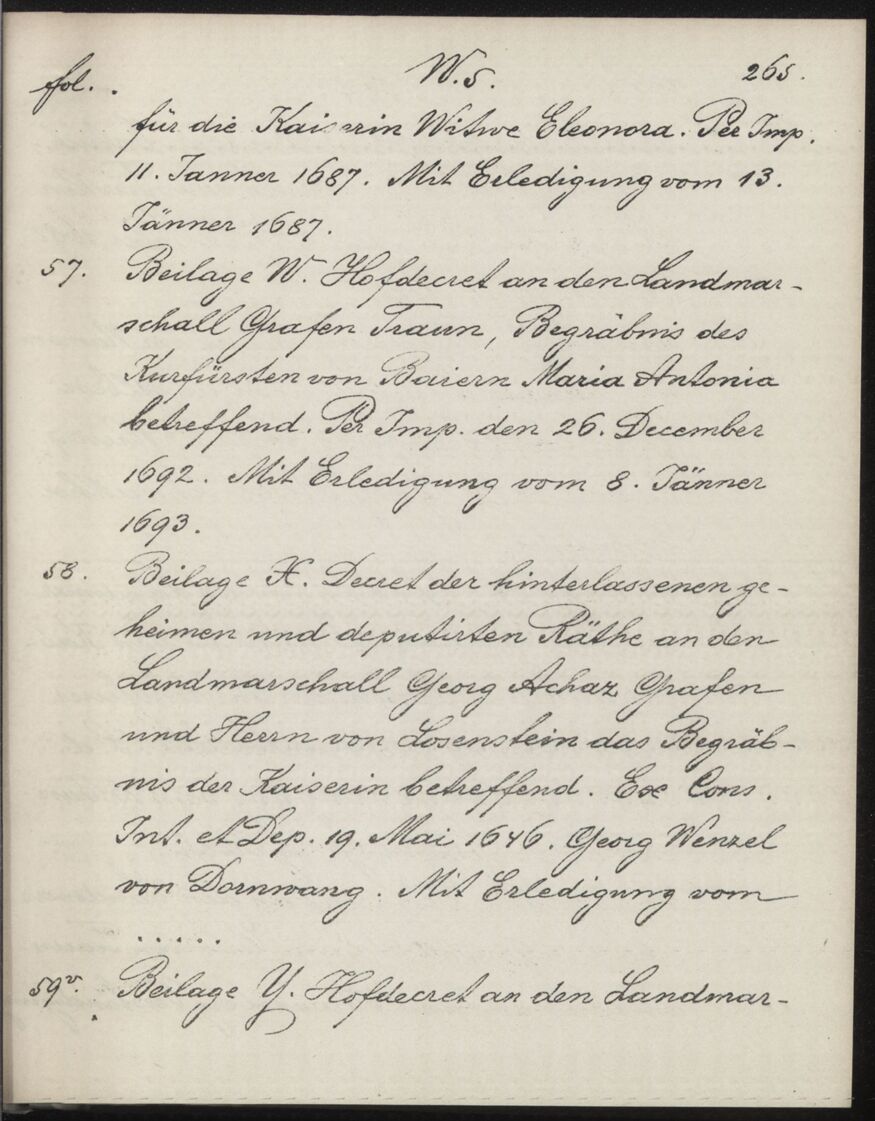 fol. W.5. 265.
für die Kaiserin Witwe Eleonora. Per Imp.
11. Janner 1687. Mit Erledigung vom 13.
Jänner 1687.
57. Beilage W. Hofdecret an den Landmar-
schall Grafen Traun, Begräbnis des
Kurfürsten von Baiern Maria Antonia
betreffend. Per Imp. den 26. December
1692. Mit Erledigung vom 8. Jänner
1693.
58. Beilage X. Decret der hinterlassenen ge-
heimen und deputirten Räthe an den
Landmarschall Georg Achaz Grafen
und Herrn von Losenstein das Begräb-
nis der Kaiserin betreffend. Ex Cons.
Int. et Dep. 19. Mai 1646. Georg Wenzel
von Dornwang. Mit Erledigung vom
. . . . .
59v. Beilage Y. Hofdecret an den Landmar-